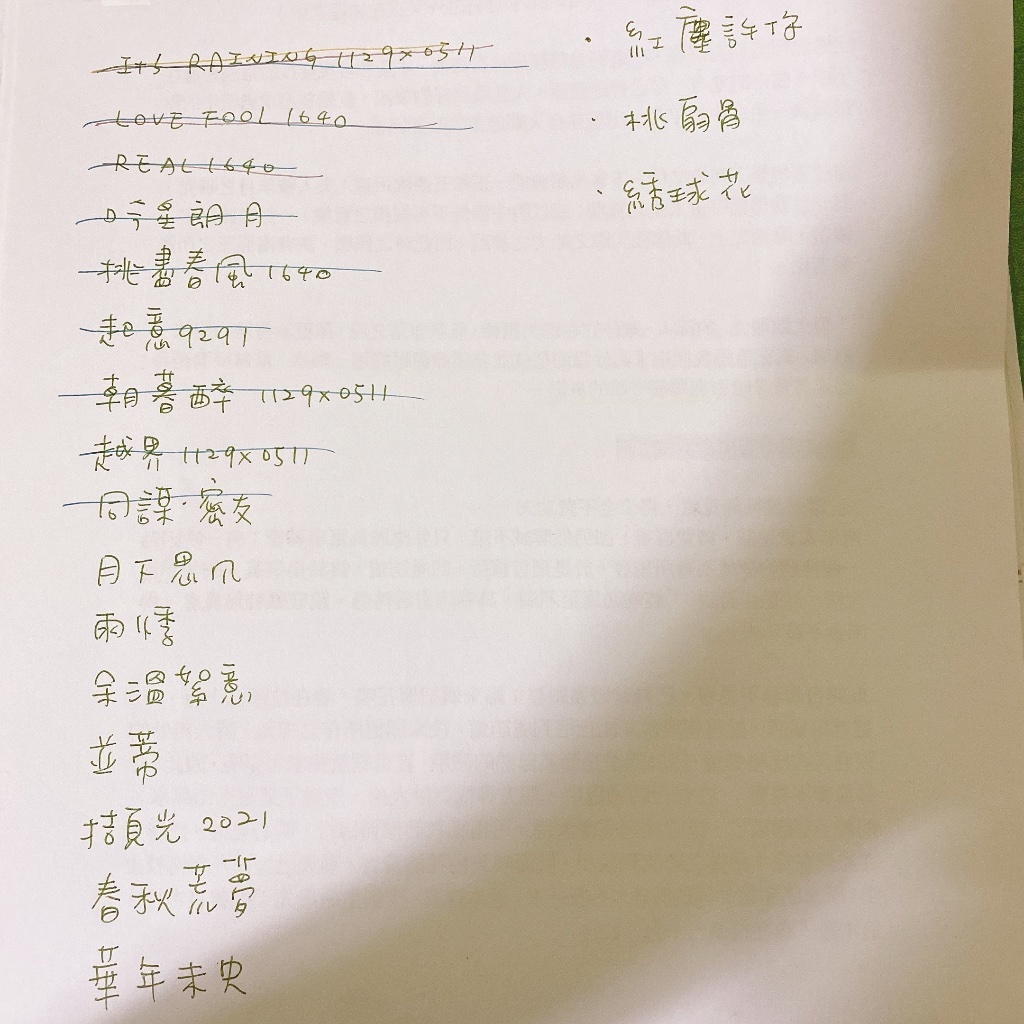 It's RAINING 1129×0511
LOVE FOOL 1640
REAL 1640
吟星朗月
桃盡春風 1640
起意 9291
朝暮醉 1129×0511
越界 1129×0511
同謀·密友
月下思凡
雨悸
余溫絮意
並蒂
擷光 2021
春秋荒夢
華年未央
· 紅塵許你
· 桃扇骨
· 綉球花